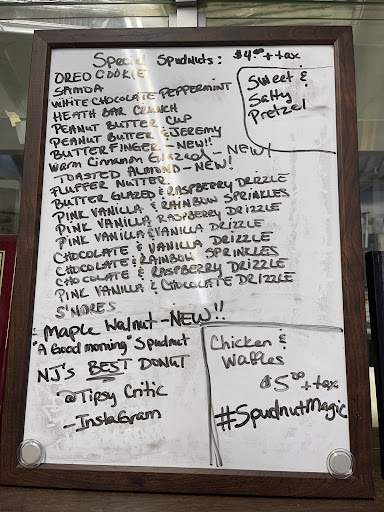 Special Spudnuts: $4.00 + tax
OREO COOKIE
SAMOA
WHITE CHOCOLATE PEPPERMINT
HEATH BAR CRUNCH
PEANUT BUTTER CUP
PEANUT BUTTER & JEREMY
BUTTERFINGER - NEW!!
Warm Cinnamon Glazed - NEW!
TOASTED ALMOND - NEW!
FLUFFER NUTTER
BUTTER GLAZED & RASPBERRY DRIZZLE
PINK VANILLA & RAINBOW SPRINKLES
PINK VANILLA RASPBERRY DRIZZLE
PINK VANILLA & VANILLA DRIZZLE
CHOCOLATE & VANILLA DRIZZLE
CHOCOLATE & RAINBOW SPRINKLES
CHOCOLATE & RASPBERRY DRIZZLE
PINK VANILLA & CHOCOLATE DRIZZLE
S'MORES
Maple Walnut - NEW!!
"A Good morning" Spudnut
NJ's BEST DONUT
@Tipsy Critic
- InstaGram
Sweet &
Salty
Pretzel
Chicken &
Waffles
$5.00 + tax
#SpudnutMagic